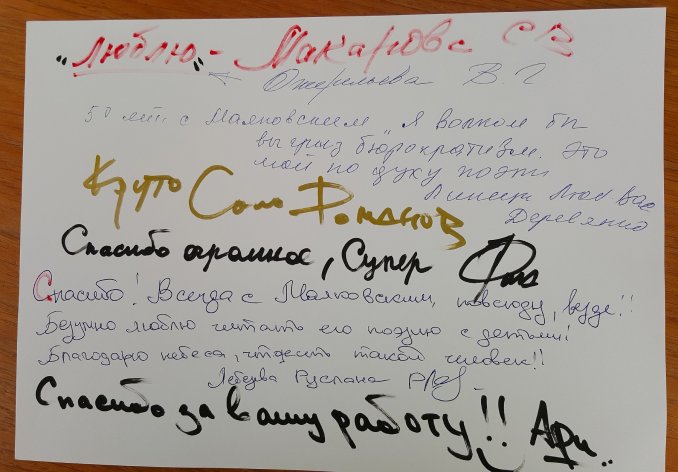 "Люблю" - Макарова СВ
Ожерельева В. Г
50 лет с Маяковским „Я волком бы
выгрыз бюрократизм. Это
мой по духу поэт
Люблю Вас
Деревянко
Круто Само Романов
Спасибо огромное, Супер
Спасибо! Всегда с Маяковским, повсюду, везде!!
Безумно люблю читать его поэзию с детьми!
Благодарю небеса, что есть такой человек!!
Руслана
Спасибо за вашу работу!! Ари..